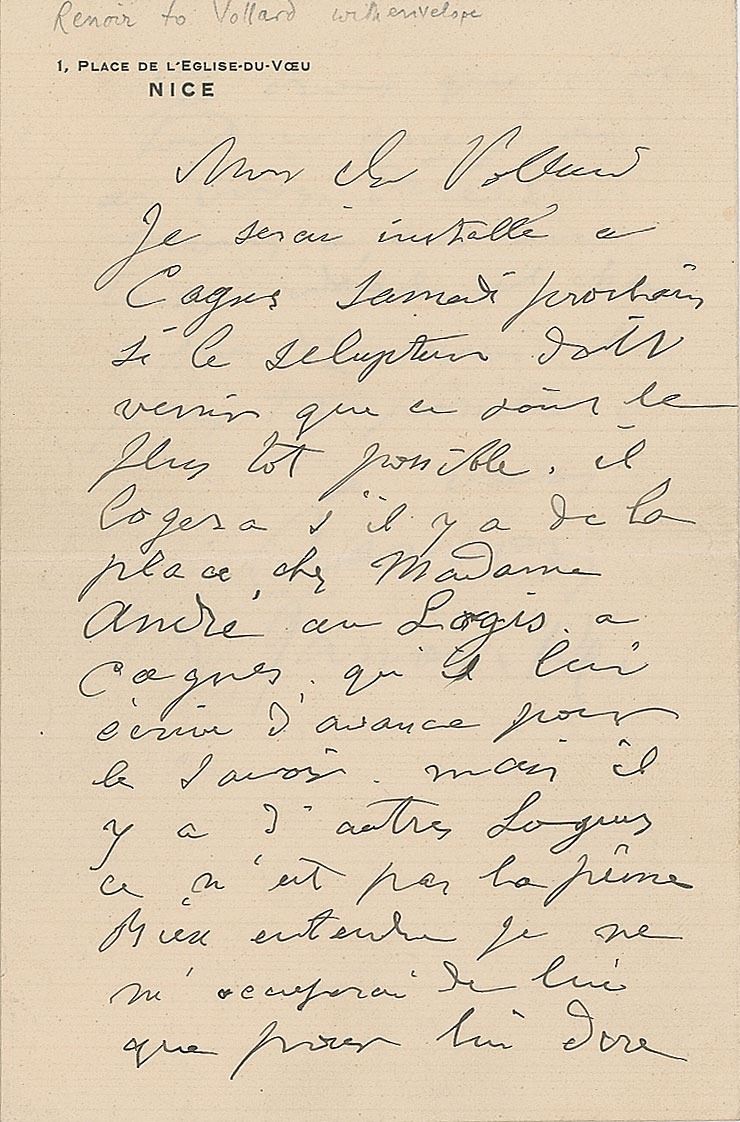 Renoir to Vollard with envelope
1, PLACE DE L'EGLISE-DU-VŒU
NICE
Mon cher Vollard
Je serai installé a
Cagnes samedi prochain
si le sculpteur doit
venir que ce soit le
plus tot possible. il
logera s'il y a de la
place chez Madame
André au Logis a
Cagnes. qu'il lui
écrive d'avance pour
le savoir. mais il
y a d'autres Logis
ce n'est pas la peine
Bien entendu je ne
m'occuperai de lui
que pour lui dire